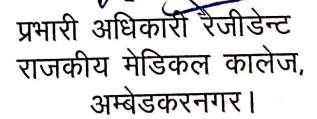 प्रभारी अधिकारी रेजीडेन्ट
राजकीय मेडिकल कालेज,
अम्बेडकरनगर।